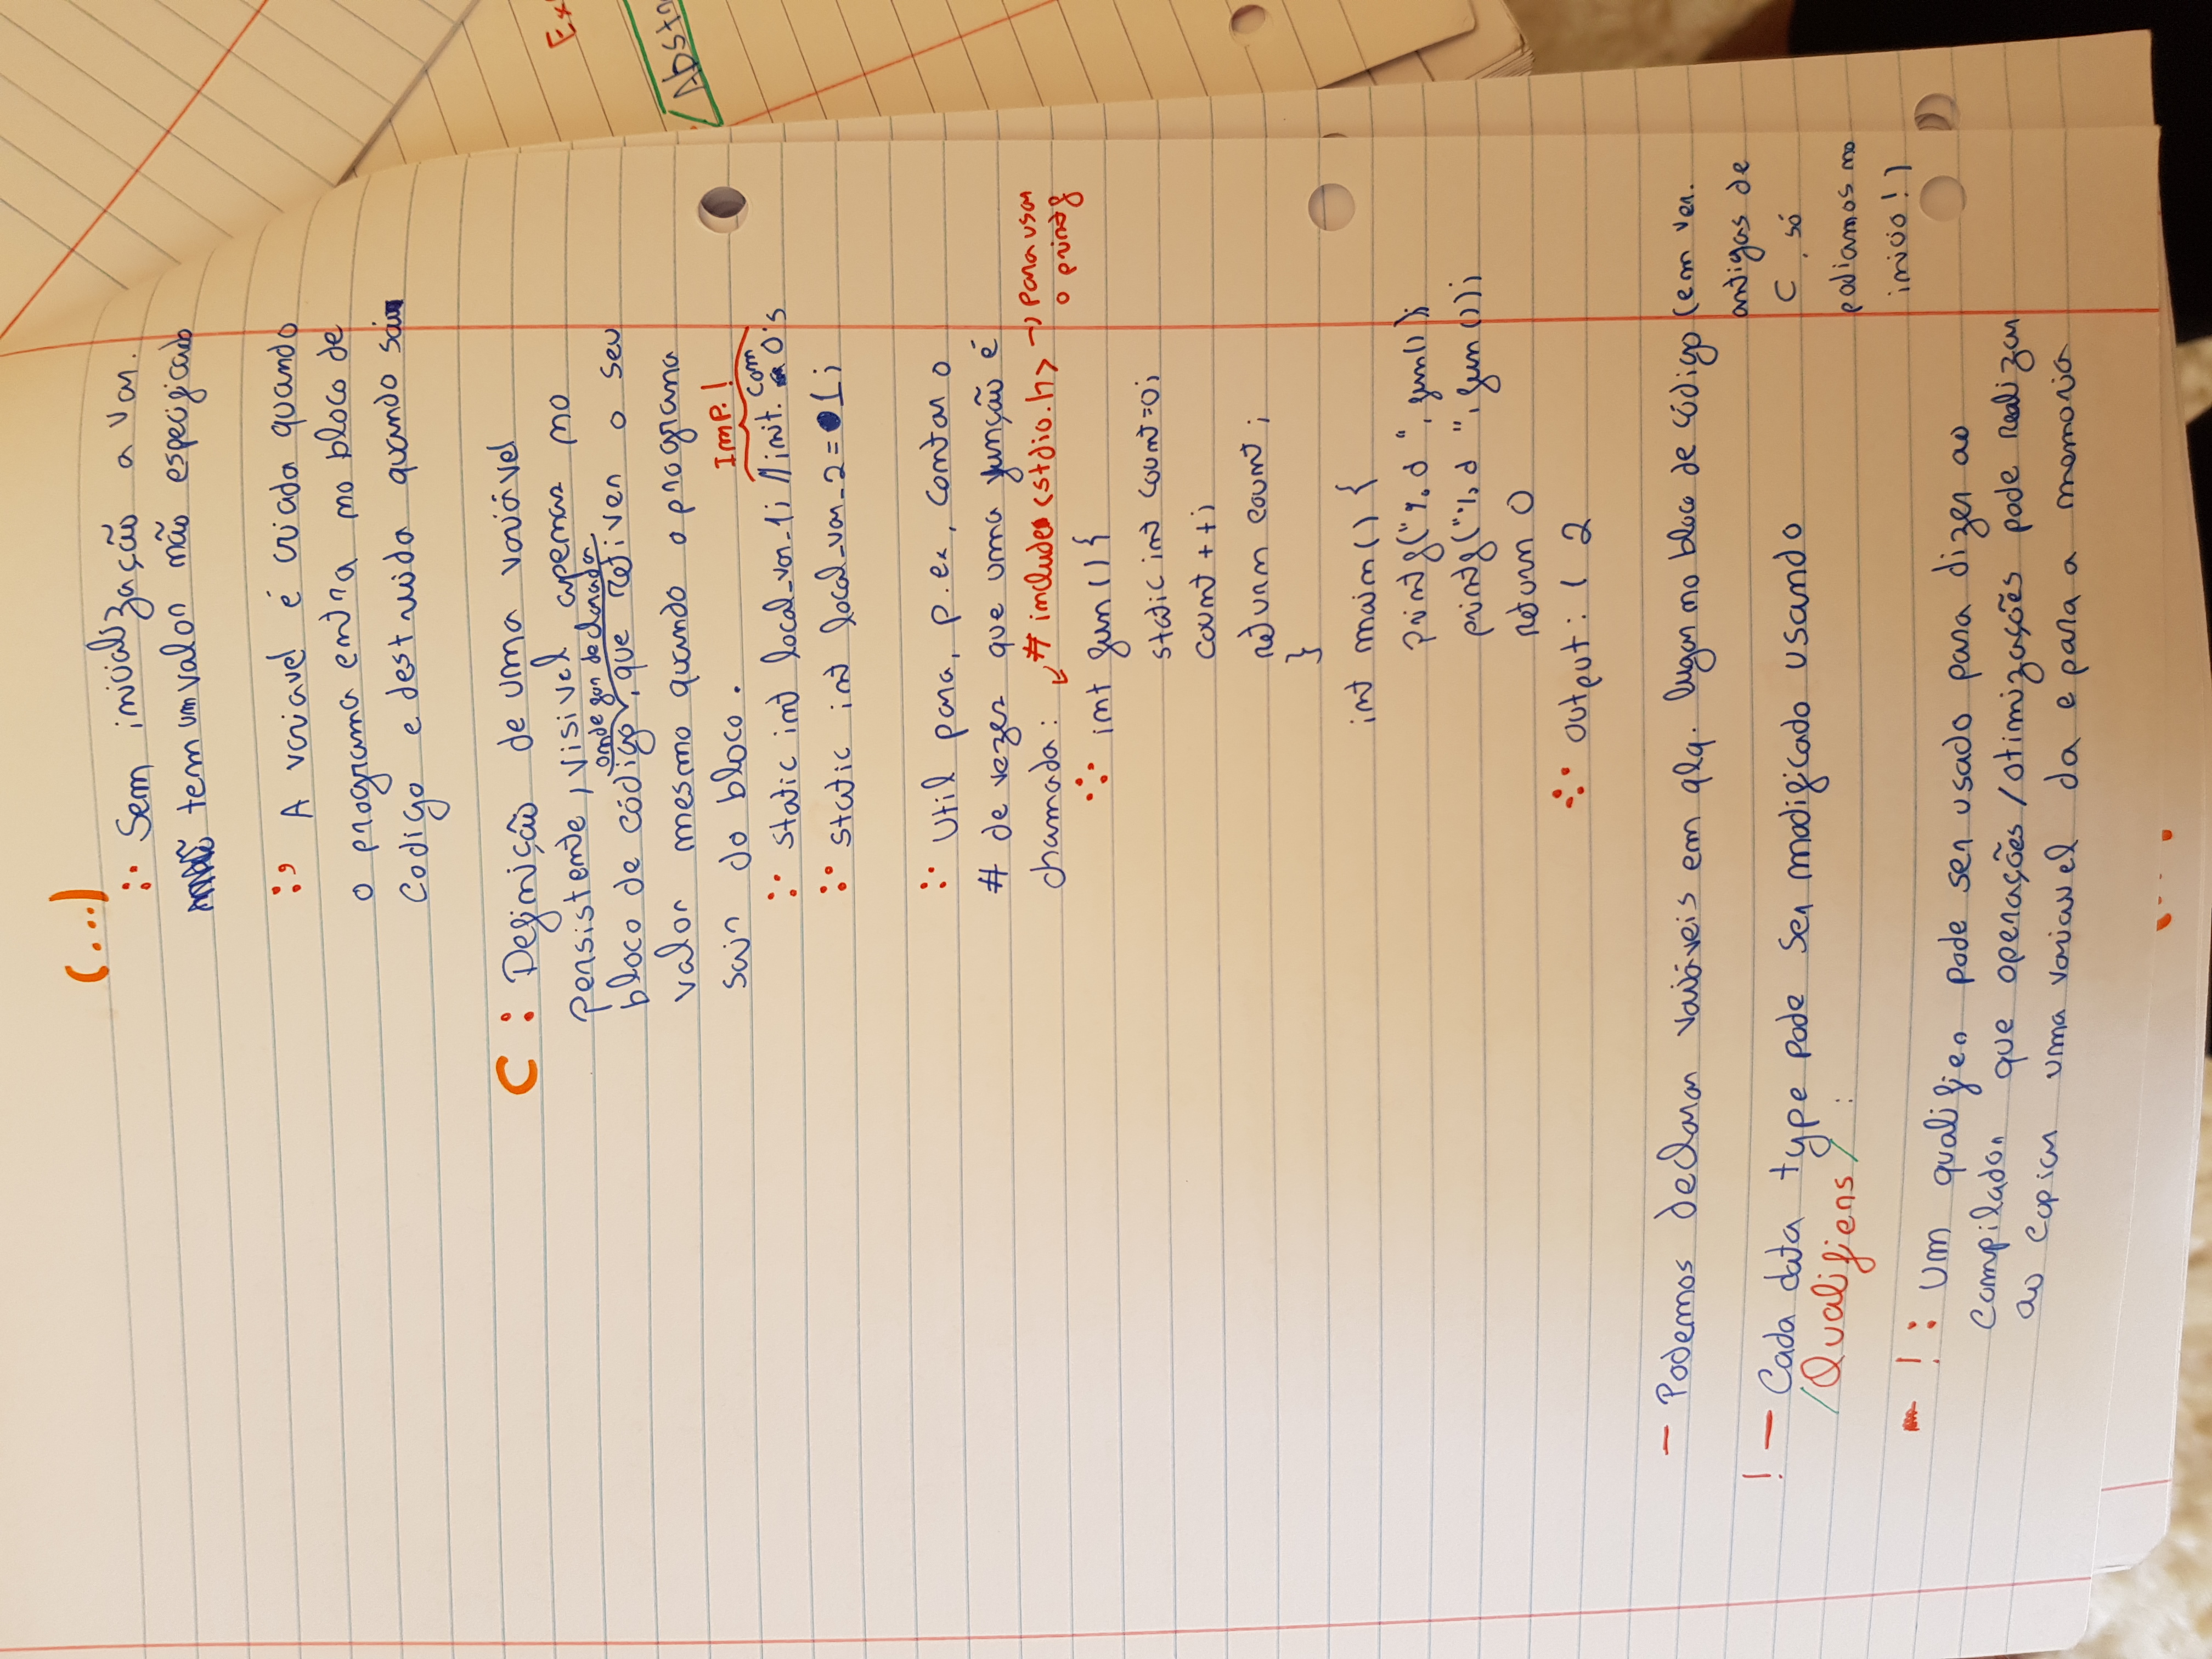 (...)
:· Sem inicialização a var.
tem um valor não especificado
:, A variavel é criada quando
o programa entra no bloco de
Codigo e destruida quando sair
C : Definição de uma variável
persistente, visivel apenas no
onde for declarada
bloco de código, que retiver o seu
valor mesmo quando o programa
sair do bloco.
Imp. !
:· static int local_var_1; //init. com 0's
:· static int local_var_2 = 1;
:· Util para, p.ex, contar o
# de vezes que uma função é
chamada:
# include <stdio.h> → para usar
o printf
int fun () {
static int count=0;
count ++;
return count ;
}
int main () {
printf("%d ", fun());
printf("%d ", fun());
return 0
output: 1 2
- Podemos declarar variáveis em qlq. lugar no bloco de código (em ver.
antigas de
C, só
podiamos no
inicio!)
! - Cada data type pode ser modificado usando
/Qualifiers/ :
- ! : Um qualifier pode ser usado para dizer ao
compilador que operações/otimizações pode realizar
ao copiar uma variavel da e para a memoria
Ex
Abstr